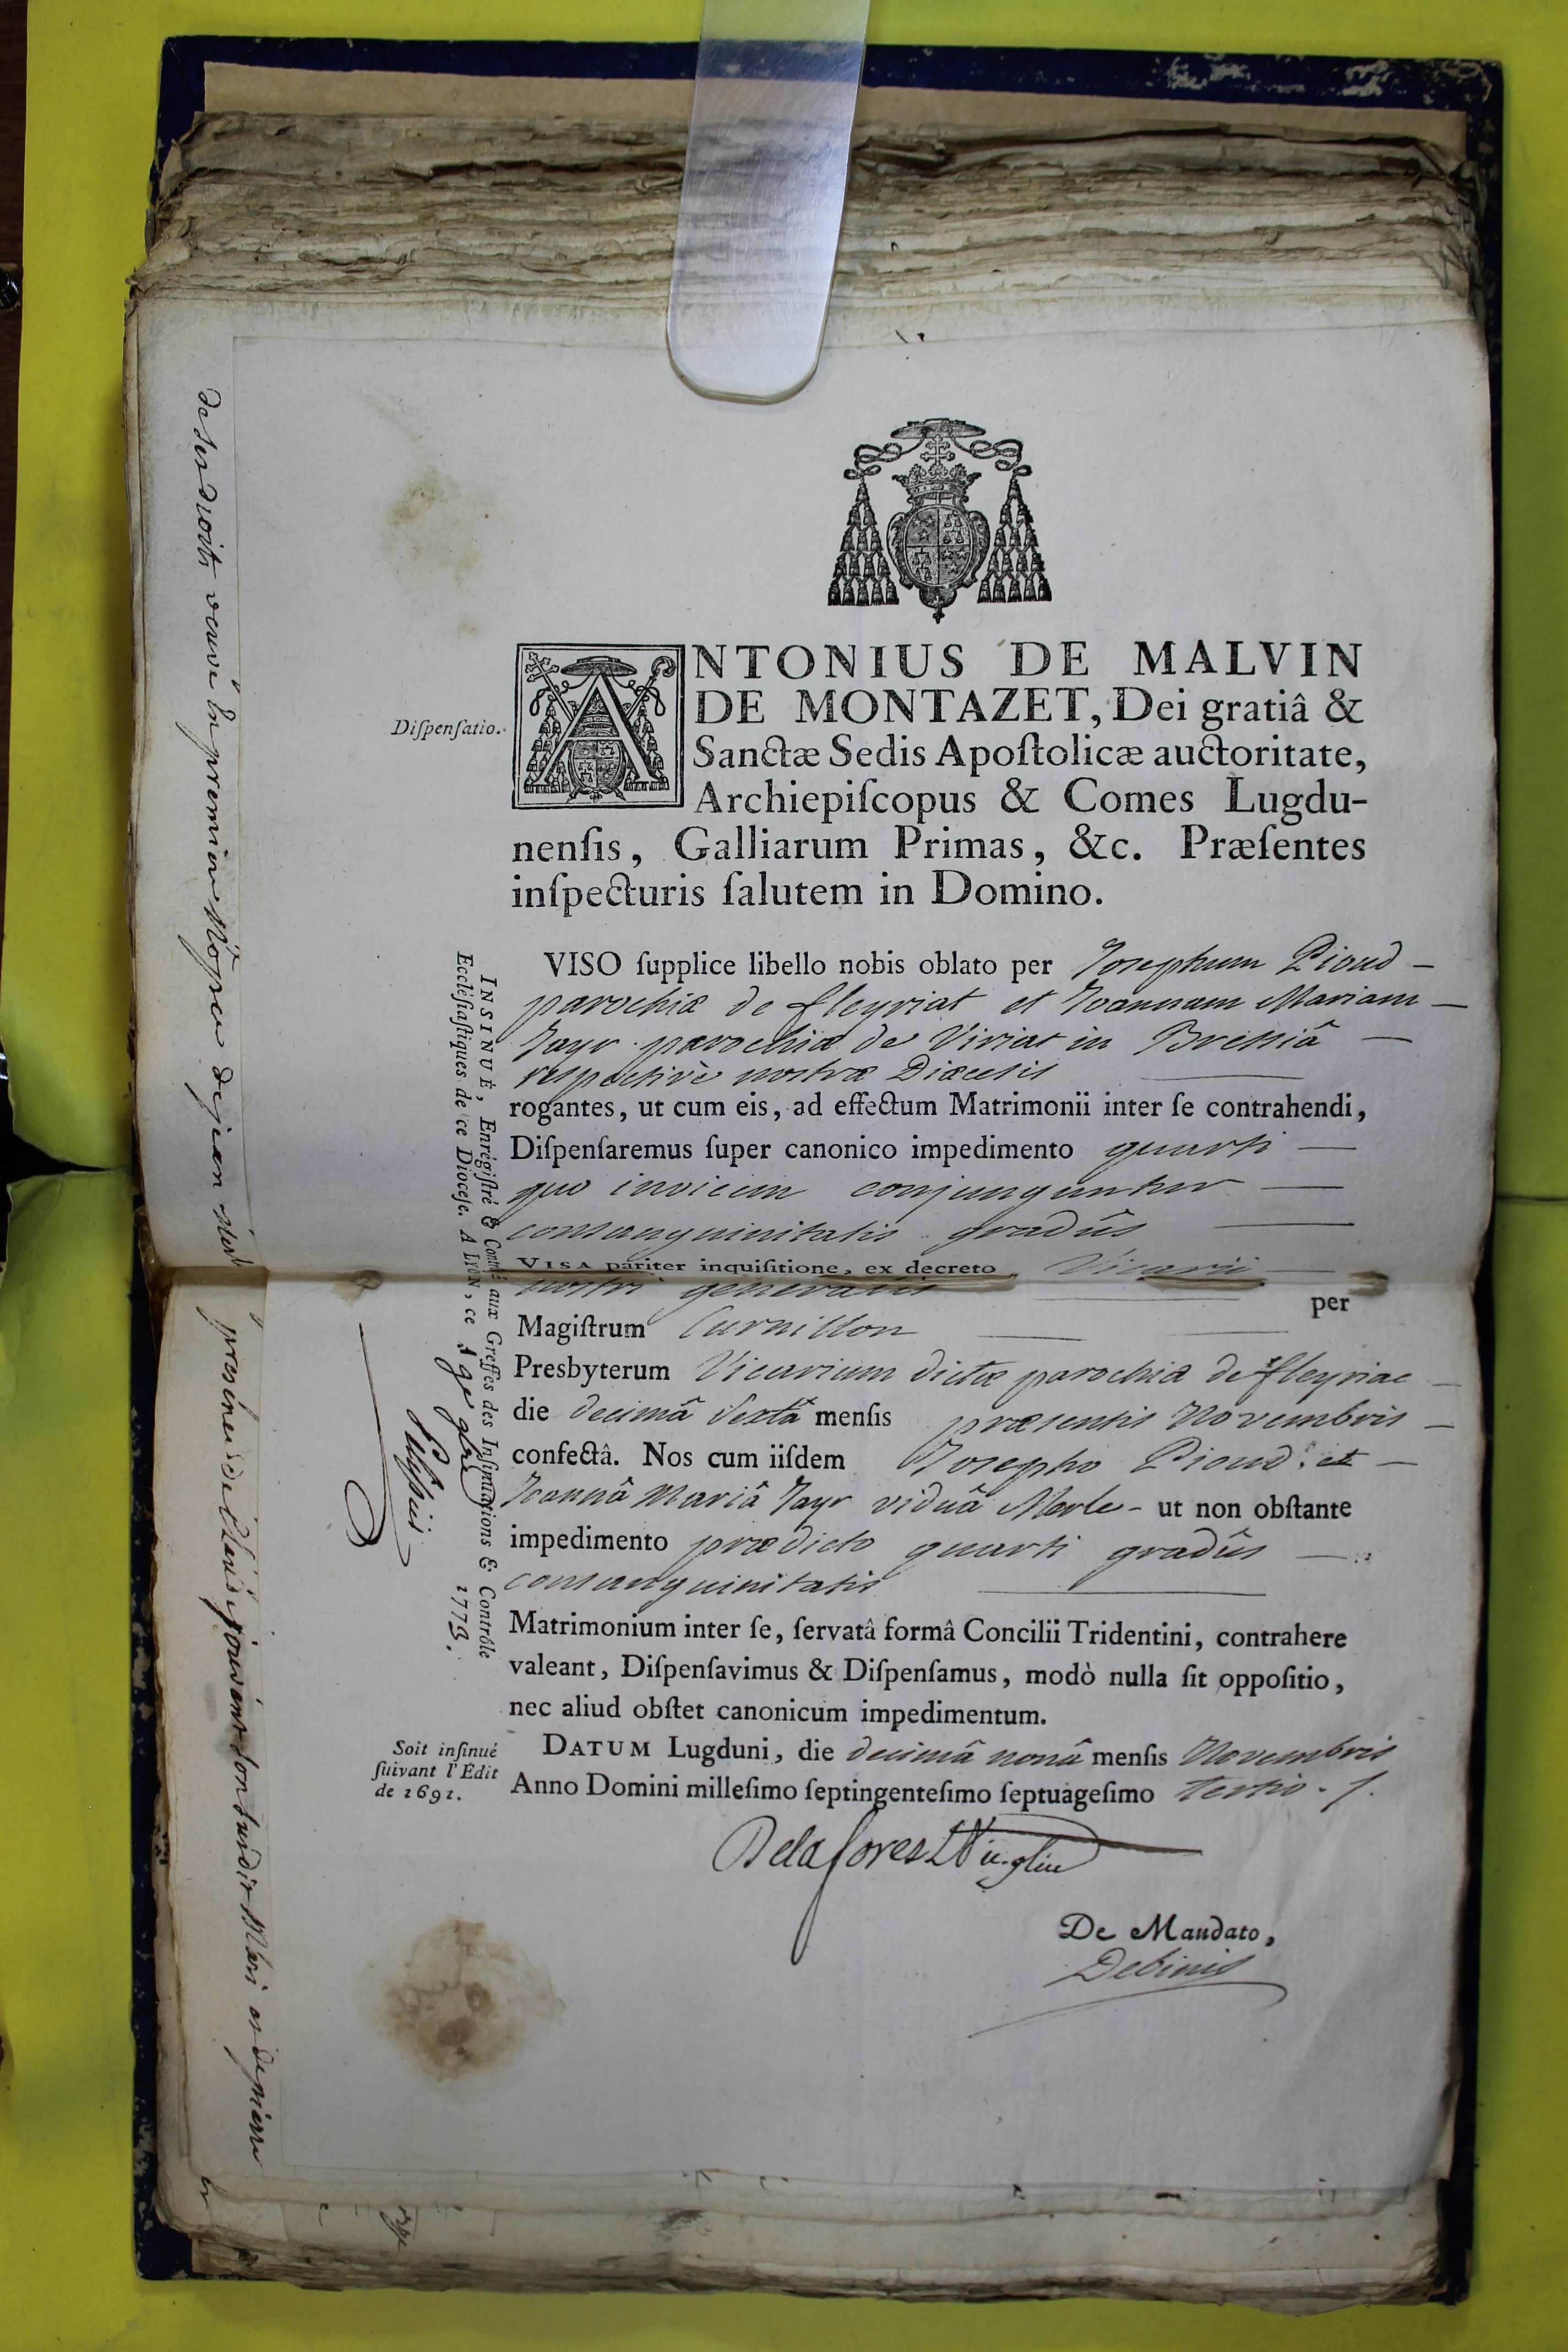 Diſpenſatio.
ANTONIUS DE MALVIN
DE MONTAZET, Dei gratiâ &
Sanctæ Sedis Apoſtolicæ auctoritate,
Archiepiſcopus & Comes Lugdu-
nenſis, Galliarum Primas, &c. Præſentes
inſpecturis ſalutem in Domino.
VISO ſupplice libello nobis oblato per Josephum Pioud
parochiæ de fleyriat et Joannam Mariam
Jayr parochiæ de Viriat in Bressiâ
respectivè nostræ Diæcesis
rogantes, ut cum eis, ad effectum Matrimonii inter ſe contrahendi,
Diſpenſaremus ſuper canonico impedimento quarti
quo invicem conjunguntur
consanguinitatis gradûs
VISA pariter inquiſitione, ex decreto Vicarii
nostri generalis
per
Magiſtrum Curnillon
Presbyterum Vicarium dictæ parochiæ de fleyriac
die decimâ Sextâ menſis præsentis Novembris
confectâ. Nos cum iiſdem Josepho Pioud et
Joannâ Mariâ Jayr viduâ Merle - ut non obſtante
impedimento prædicto quarti gradûs
consanguinitatis
Matrimonium inter ſe, ſervatâ formâ Concilii Tridentini, contrahere
valeant, Diſpenſavimus & Diſpenſamus, modò nulla ſit oppoſitio,
nec aliud obſtet canonicum impedimentum.
DATUM Lugduni, die decimâ nonâ menſis Novembris
Anno Domini milleſimo ſeptingenteſimo ſeptuageſimo tertio.
Soit inſinué
ſuivant l'Édit
de 1691.
Delaforest Vic. glis
De Mandato,
INSINUÉ, Enrégiſtré & Contrôlé aux Greffes des Inſinuations & Contrôle
Eccléſiaſtiques de ce Dioceſe. A LYON, ce 19e 9bre 1773.
de ses droits veuve en premieres Nopces de jean